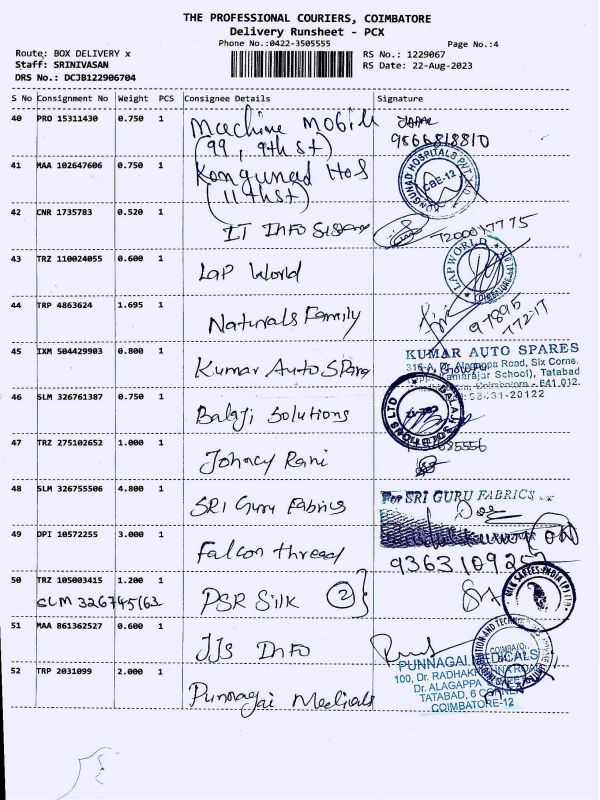 THE PROFESSIONAL COURIERS, COIMBATORE
Delivery Runsheet - PCX
Phone No.:0422-3505555
Page No.:4
Route: BOX DELIVERY x
RS No.: 1229067
Staff: SRINIVASAN
RS Date: 22-Aug-2023
DRS No.: DCJB122906704
S No Consignment No Weight PCS Consignee Details Signature
40 PRO 15311430 0.750 1 Machine Mobile
(99, 9th st) 9566818810
41 MAA 102647606 0.750 1 Kongunad Hos
(11th st)
KONGUNAD HOSPITALS PVT
CBE-12
42 CNR 1735783 0.520 1 IT Info System
7200017775
43 TRZ 110024055 0.600 1 Lap World
LAPWORLD
44 TRP 4863624 1.695 1 Naturals Family
97895
77217
45 IXM 504429903 0.800 1 Kumar Auto Spares
KUMAR AUTO SPARES
316-A, Dr. Alagappa Road, Six Corne.
Kamarajar School), Tatabad
Coimbatore - 641 012.
46 SLM 326761387 0.750 1 Balaji Solutions
BALAJI SOLUTIONS LTD
47 TRZ 275102652 1.000 1 Johncy Rani
48 SLM 326755506 4.800 1 SRI Guru Fabrics
For SRI GURU FABRICS
49 DPI 10572255 3.000 1 Falcon thread
50 TRZ 105003415 1.200 1 PSR Silk (2)
SLM 326745163
51 MAA 861362527 0.600 1 JJs Info
52 TRP 2031099 2.000 1 Punnagai Medicals
PUNNAGAI MEDICALS
100, Dr. RADHAKRISHNA ROAD
Dr. ALAGAPPA
TATABAD, 6 CORNER
COIMBATORE-12